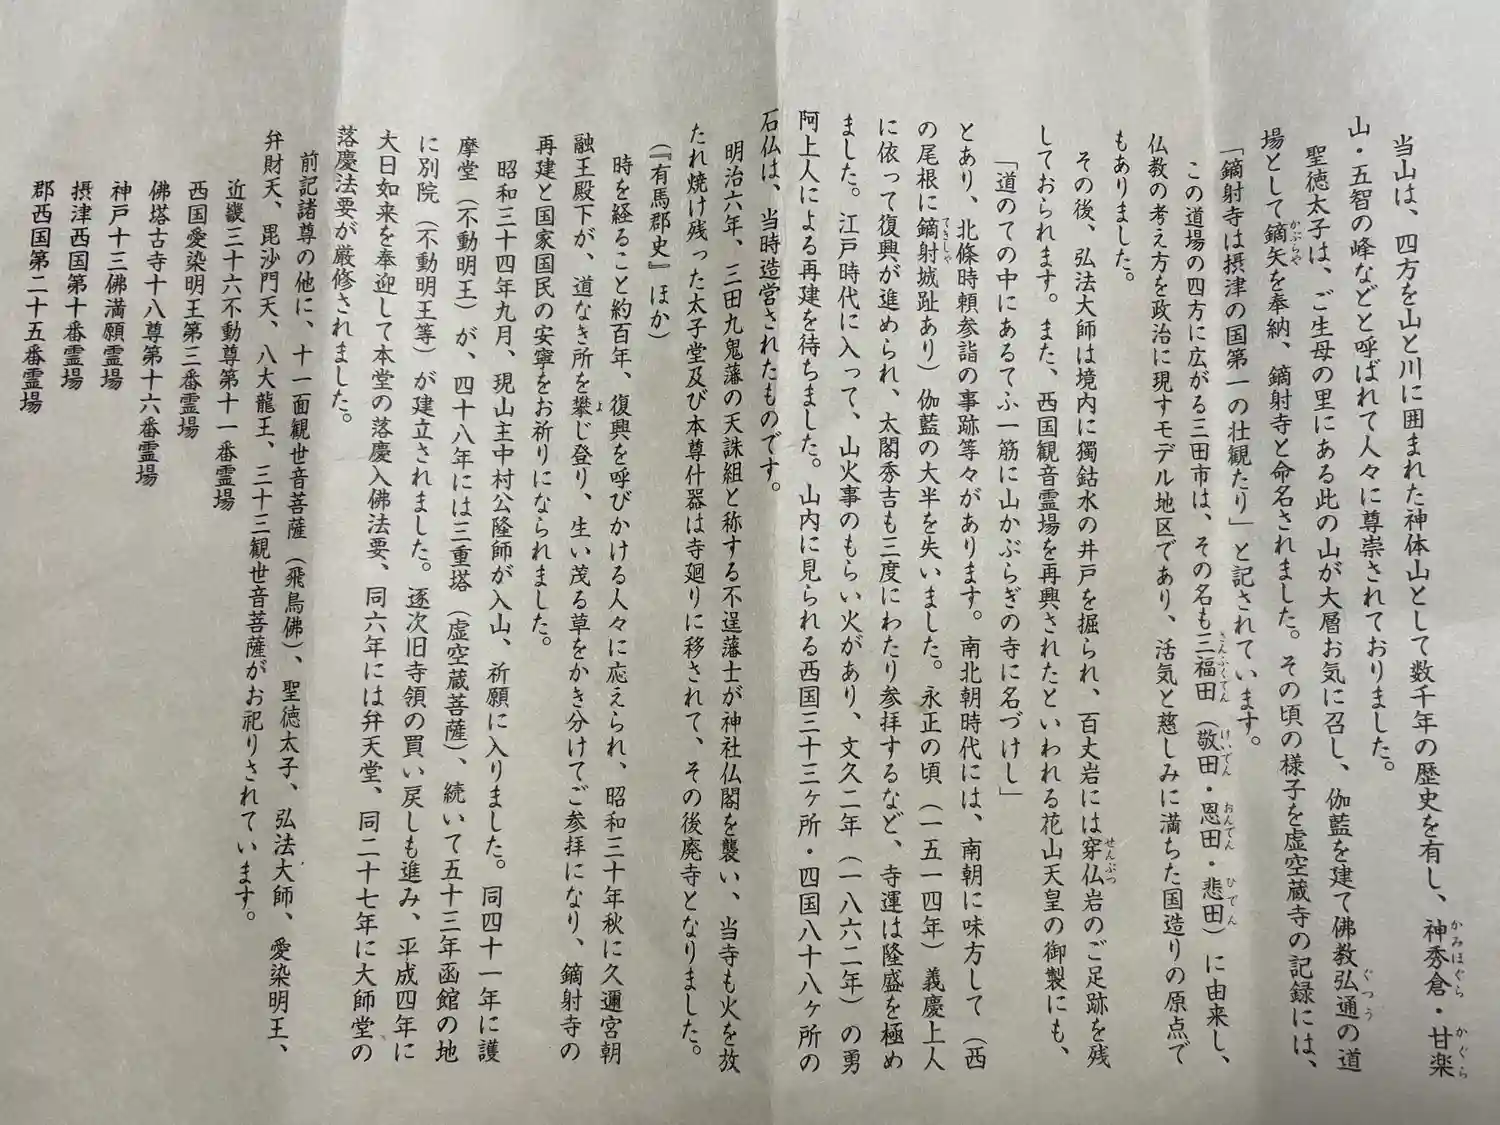 当山は、四方を山と川に囲まれた神体山として数千年の歴史を有し、神秀倉・甘楽
かみほぐら かぐら
山・五智の峰などと呼ばれて人々に尊崇されておりました。
聖徳太子は、ご生母の里にある此の山が大層お気に召し、伽藍を建て佛教弘通の道
ぐつう
場として鏑矢を奉納、鏑射寺と命名されました。その頃の様子を虚空蔵寺の記録には、
かぶらや
「鏑射寺は摂津の国第一の壮観たり」と記されています。
この道場の四方に広がる三田市は、その名も三福田(敬田・恩田・悲田)に由来し、
さんふくでん けいでん おんでん ひでん
仏教の考え方を政治に現すモデル地区であり、活気と慈しみに満ちた国造りの原点で
もありました。
その後、弘法大師は境内に獨鈷水の井戸を掘られ、百丈岩には穿仏岩のご足跡を残
せんぶつ
しておられます。また、西国観音霊場を再興されたといわれる花山天皇の御製にも、
「道のての中にあるてふ一筋に山かぶらぎの寺に名づけし」
とあり、北條時頼参詣の事跡等々があります。南北朝時代には、南朝に味方して(西
の尾根に鏑射城趾あり)伽藍の大半を失いました。永正の頃(一五一四年)義慶上人
てきしゃ
に依って復興が進められ、太閤秀吉も三度にわたり参拝するなど、寺運は隆盛を極め
ました。江戸時代に入って、山火事のもらい火があり、文久二年(一八六二年)の勇
阿上人による再建を待ちました。山内に見られる西国三十三ヶ所・四国八十八ヶ所の
石仏は、当時造営されたものです。
明治六年、三田九鬼藩の天誅組と称する不逞藩士が神社仏閣を襲い、当寺も火を放
たれ焼け残った太子堂及び本尊什器は寺廻りに移されて、その後廃寺となりました。
(『有馬郡史』ほか)
時を経ること約百年、復興を呼びかける人々に応えられ、昭和三十年秋に久邇宮朝
融王殿下が、道なき所を攀じ登り、生い茂る草をかき分けてご参拝になり、鏑射寺の
よ
再建と国家国民の安寧をお祈りになられました。
昭和三十四年九月、現山主中村公隆師が入山、祈願に入りました。同四十一年に護
摩堂(不動明王)が、四十八年には三重塔(虚空蔵菩薩)、続いて五十三年函館の地
に別院(不動明王等)が建立されました。逐次旧寺領の買い戻しも進み、平成四年に
大日如来を奉迎して本堂の落慶入佛法要、同六年には弁天堂、同二十七年に大師堂の
落慶法要が厳修されました。
前記諸尊の他に、十一面観世音菩薩(飛鳥佛)、聖徳太子、弘法大師、愛染明王、
弁財天、毘沙門天、八大龍王、三十三観世音菩薩がお祀りされています。
近畿三十六不動尊第十一番霊場
西国愛染明王第三番霊場
佛塔古寺十八尊第十六番霊場
神戸十三佛満願霊場
摂津西国第十番霊場
郡西国第二十五番霊場